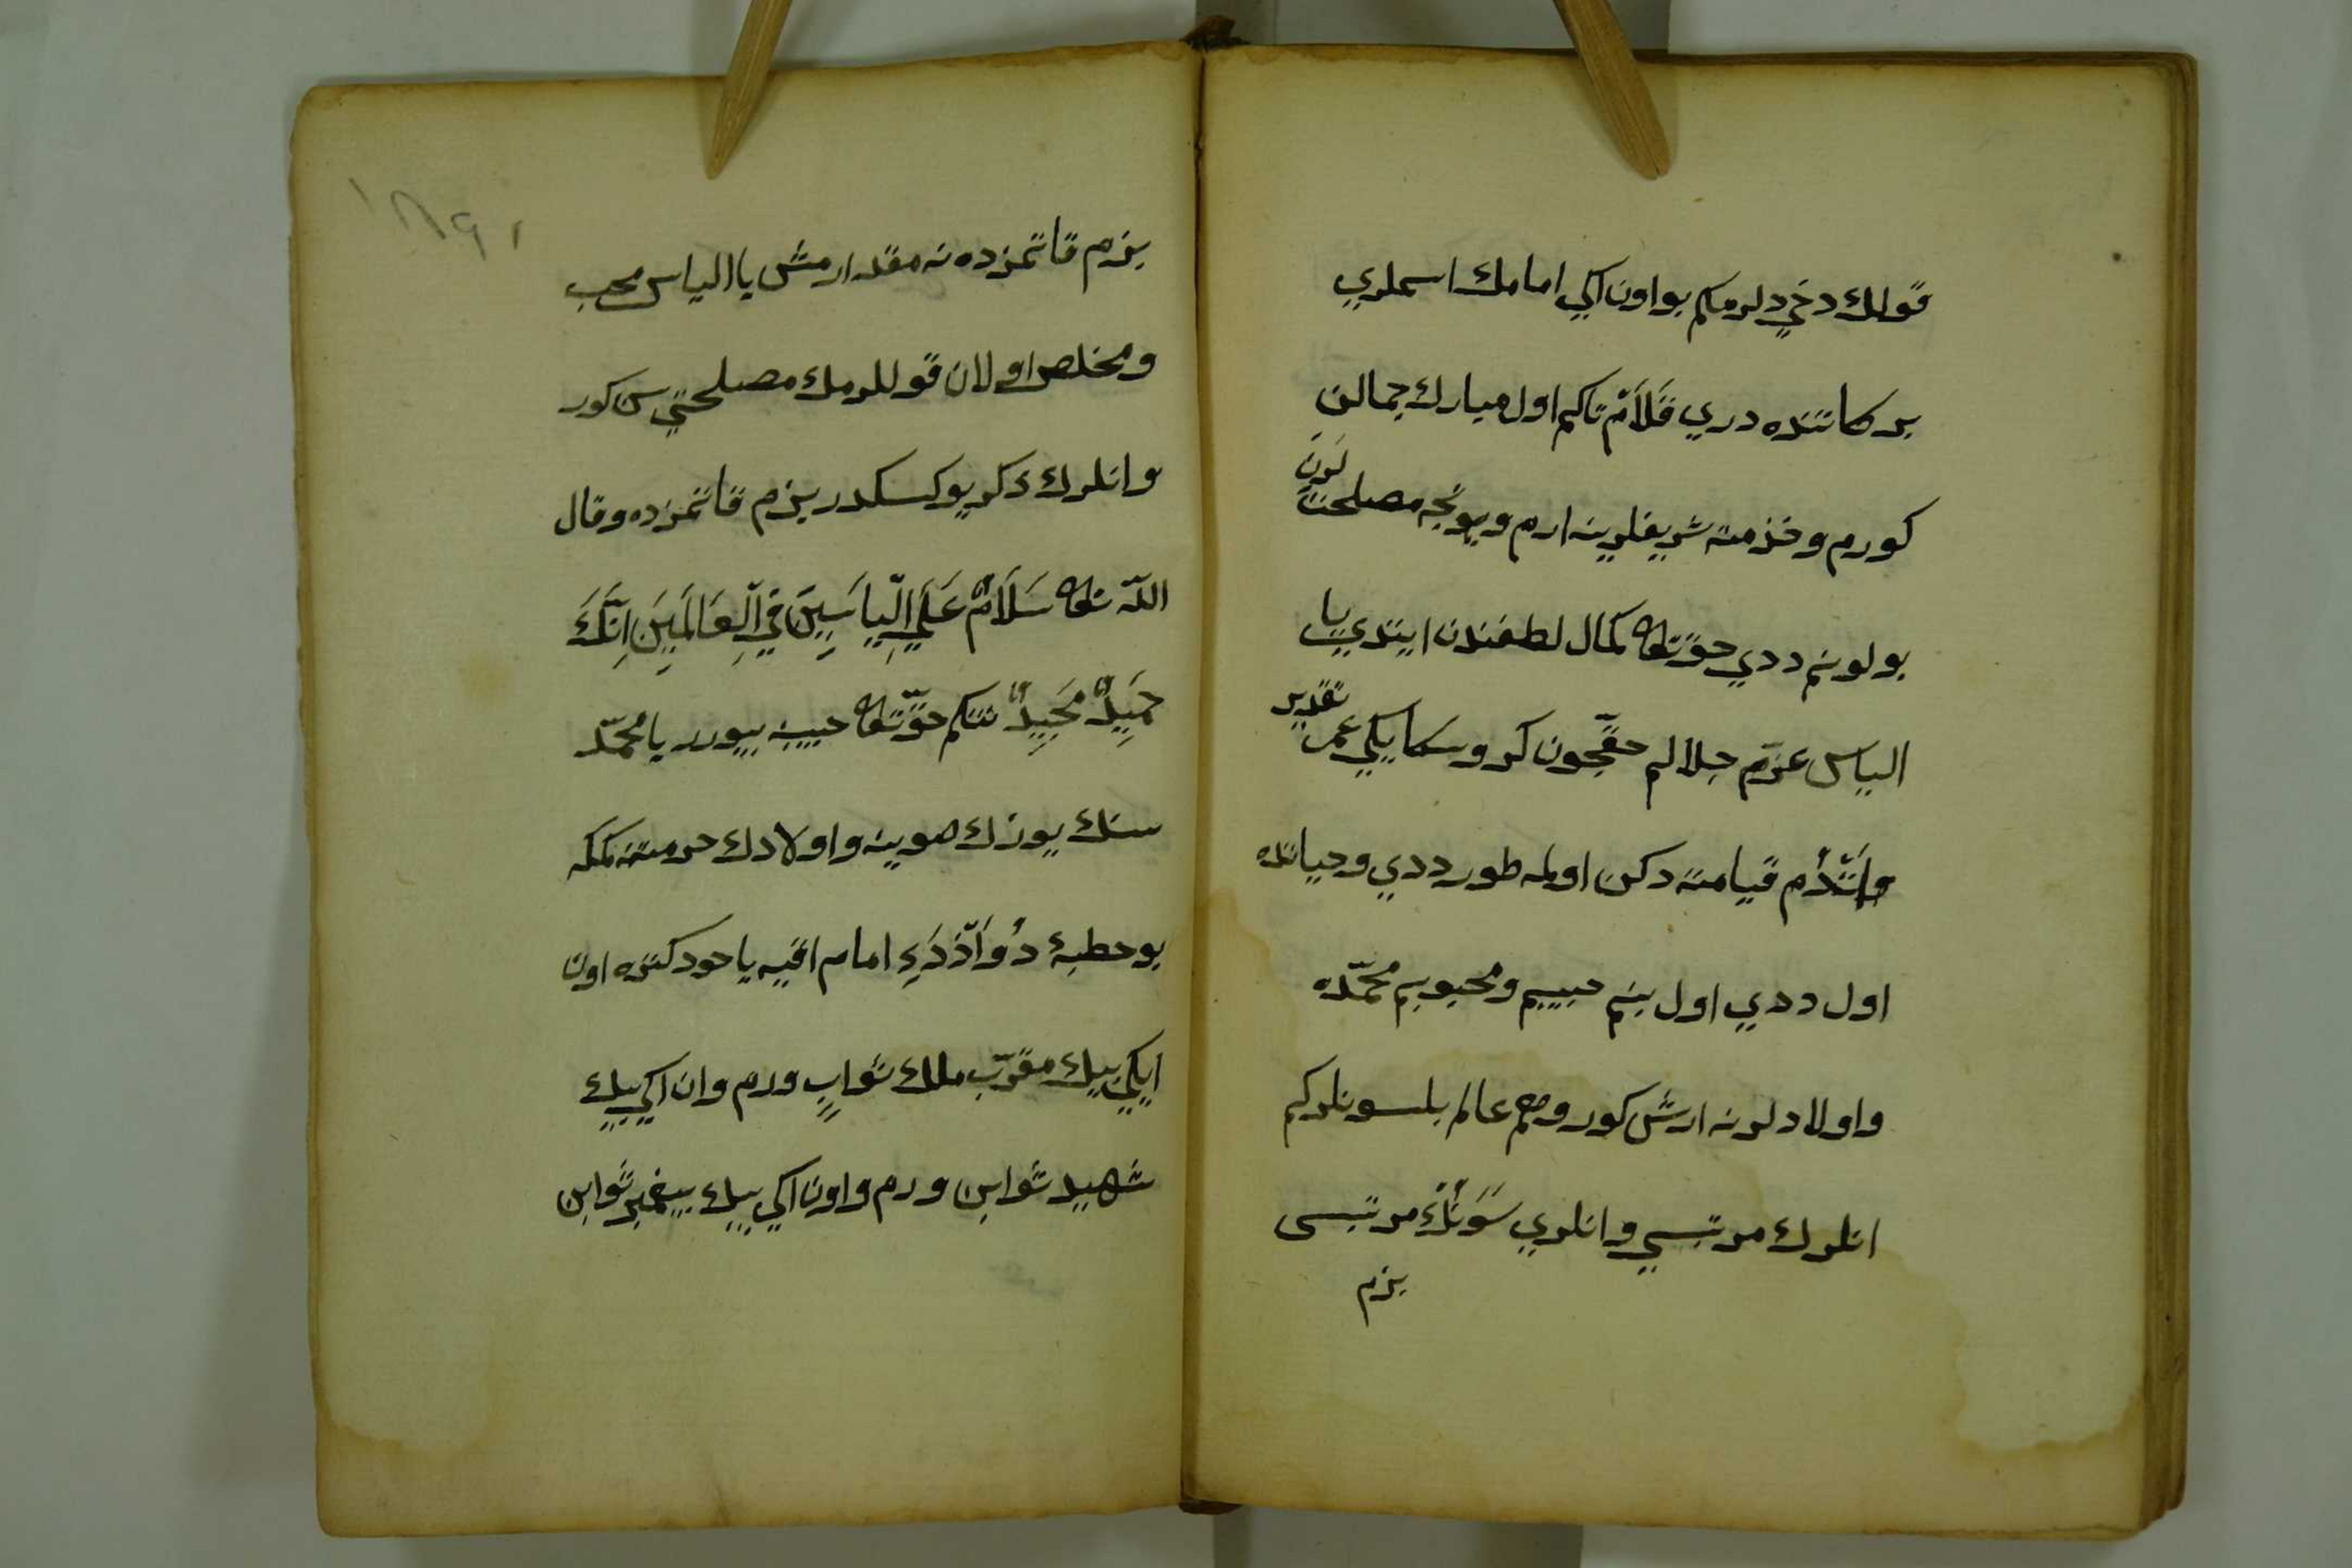 قولك دخي دلرمكم بو اون اكي امامك اسملري
بركاتنده دري قلام تاكم اول مبارك جمالن
كورم وخذمته شريفلرينه ارم وبونجه مصلحت لرن
بولونم ددي حق تعالى كمال لطفندن ايتدي يا
الياس عزم جلالم حقيچون كر وسكا يكي عمر تقدير
واتدم قيامته دكن اولمه طور ددي وحياتده
اول ددي اول بنم حبيبم ومحبوبم محمده
واولادلرنه ارش كور وهم عالم بلسونلركم
انلرك مرتبسي وانلري سونك مرتبسى
بزم
بزم قاتمزده نه مقدارمش يا الياس محب
ومخلص اولان قوللرمك مصلحتي سن كور
وانلرك ذكر يوكسكدر بزم قاتمزده وقال
الله تعالى سَلَامٌ عَلَي اِلْيَاسِينَ فِي الْعَالَمِينَ اِنَّكَ
حَمِيدٌ مَجِيدٌ نتكم حق تعالى حبيبنه بيورر يا محمّد
سنك يوزك صوينه واولادك حرمتنه كمكه
بو خطبهٔ دُوَازْدَءِ امام اقيه يا خود كتره اون
ايكي بيك مقرّب ملك ثوابٍ ورم وان اكي بيك
شهيد ثوابن ورم واون اكي بيك بيغمبر ثوابن
١٨٩١